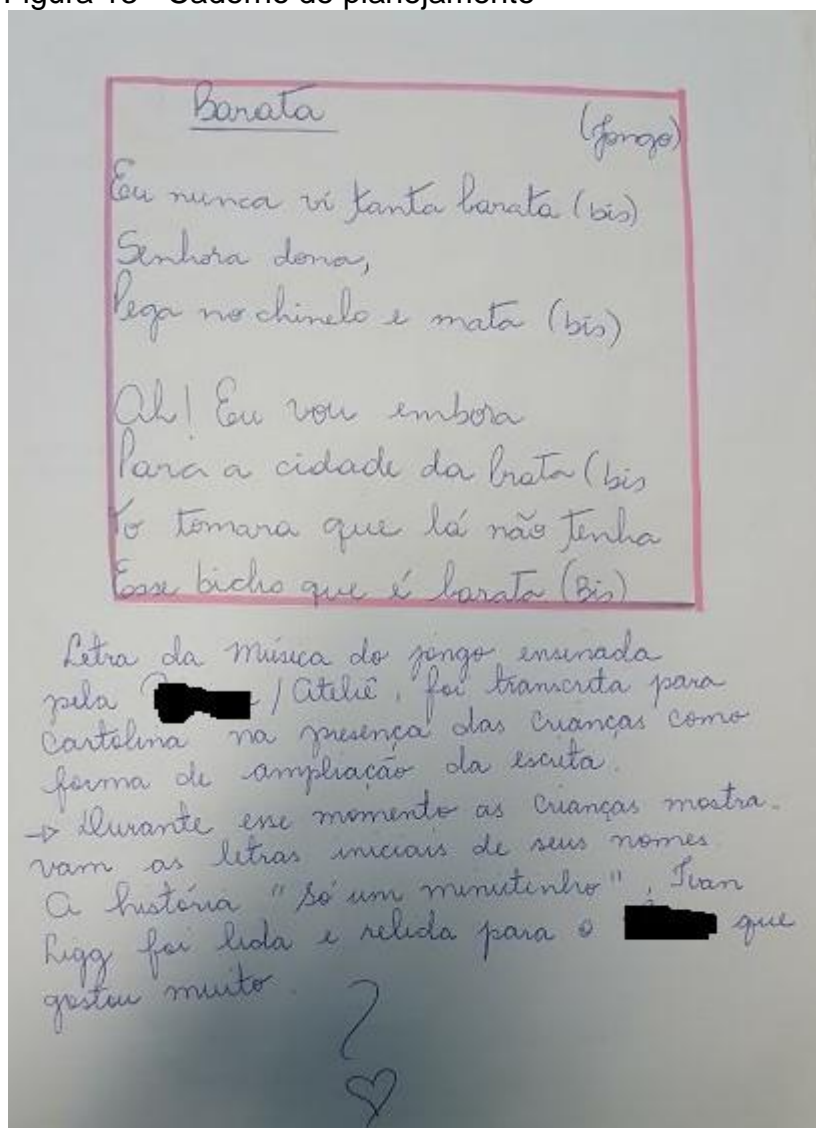 Figura 18 - Caderno de planejamento
Barata
(Jongo)
Eu nunca vi tanta barata (bis)
Senhora dona,
Pega no chinelo e mata (bis)
Ah! Eu vou embora
Para a cidade da brata (bis
To tomara que lá não tenha
Esse bicho que é barata (Bis)
Letra da Música do jongo ensinada
pela / Ateliê, foi transcrita para
cartolina na presença das crianças como
forma de ampliação da escuta.
→ Durante esse momento as crianças mostra-
vam as letras iniciais de seus nomes.
A história "Só um minutinho", Ivan
Zigg foi lida e relida para o que
gostou muito.